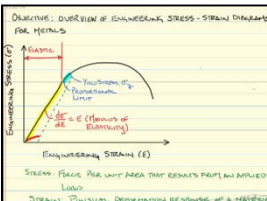 OBJECTIVE: OVERVIEW OF ENGINEERING STRESS-STRAIN DIAGRAMS
FOR METALS
ELASTIC
YIELD STRESS, σy
PROPORTIONAL
LIMIT
dσ/dε = E (MODULUS OF
ELASTICITY)
ENGINEERING STRESS (σ)
ENGINEERING STRAIN (ε)
STRESS: FORCE PER UNIT AREA THAT RESULTS FROM AN APPLIED
LOAD
STRAIN: PHYSICAL DEFORMATION RESPONSE OF A MATERIAL